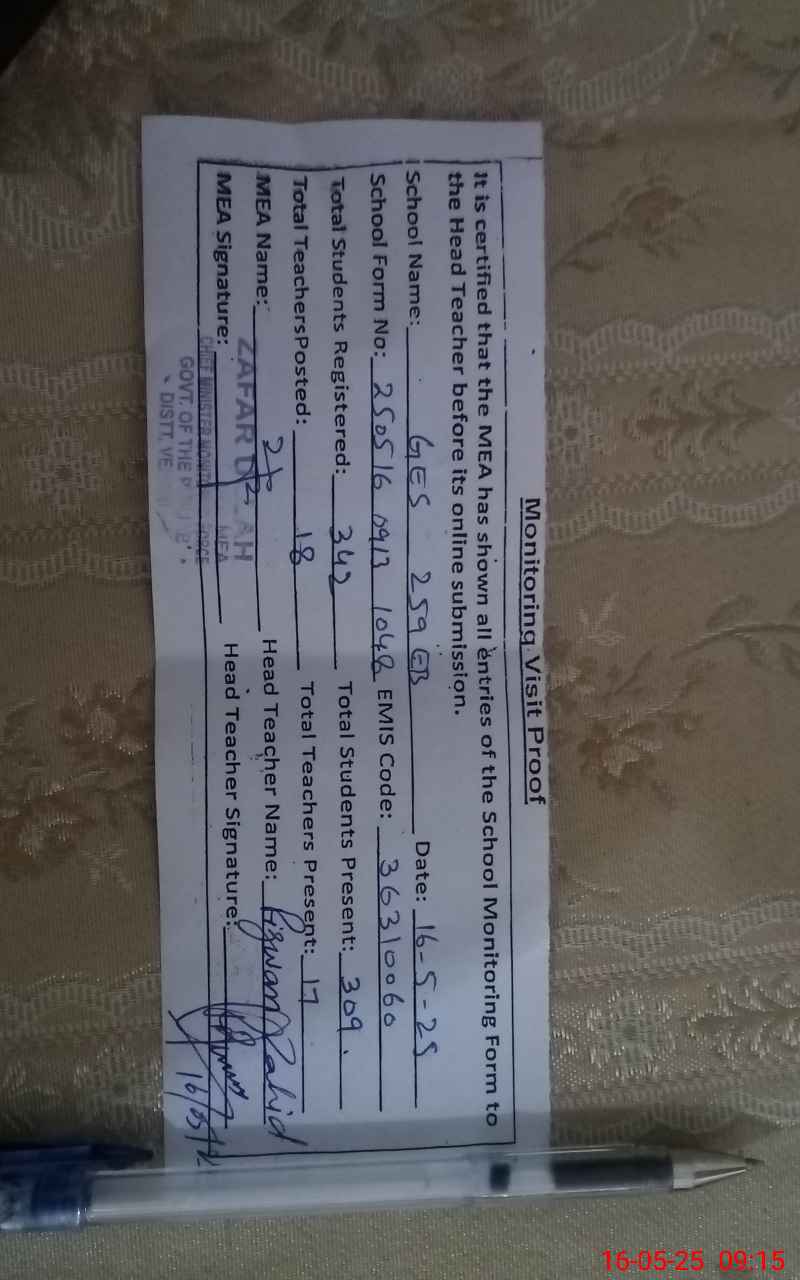 Monitoring Visit Proof
It is certified that the MEA has shown all entries of the School Monitoring Form to
the Head Teacher before its online submission.
School Name: GES 259 EB Date: 16-5-25
School Form No: 250516 0913 1048 EMIS Code: 36310060
Total Students Registered: 342 Total Students Present: 309.
Total TeachersPosted: 18 Total Teachers Present: 17
MEA Name: ZAFAR Head Teacher Name: Rizwan Zahid
MEA Signature: Head Teacher Signature:
CHIEF MINISTER MEA
GOVT. OF THE
DISTT. VE
16-05-25 09:15